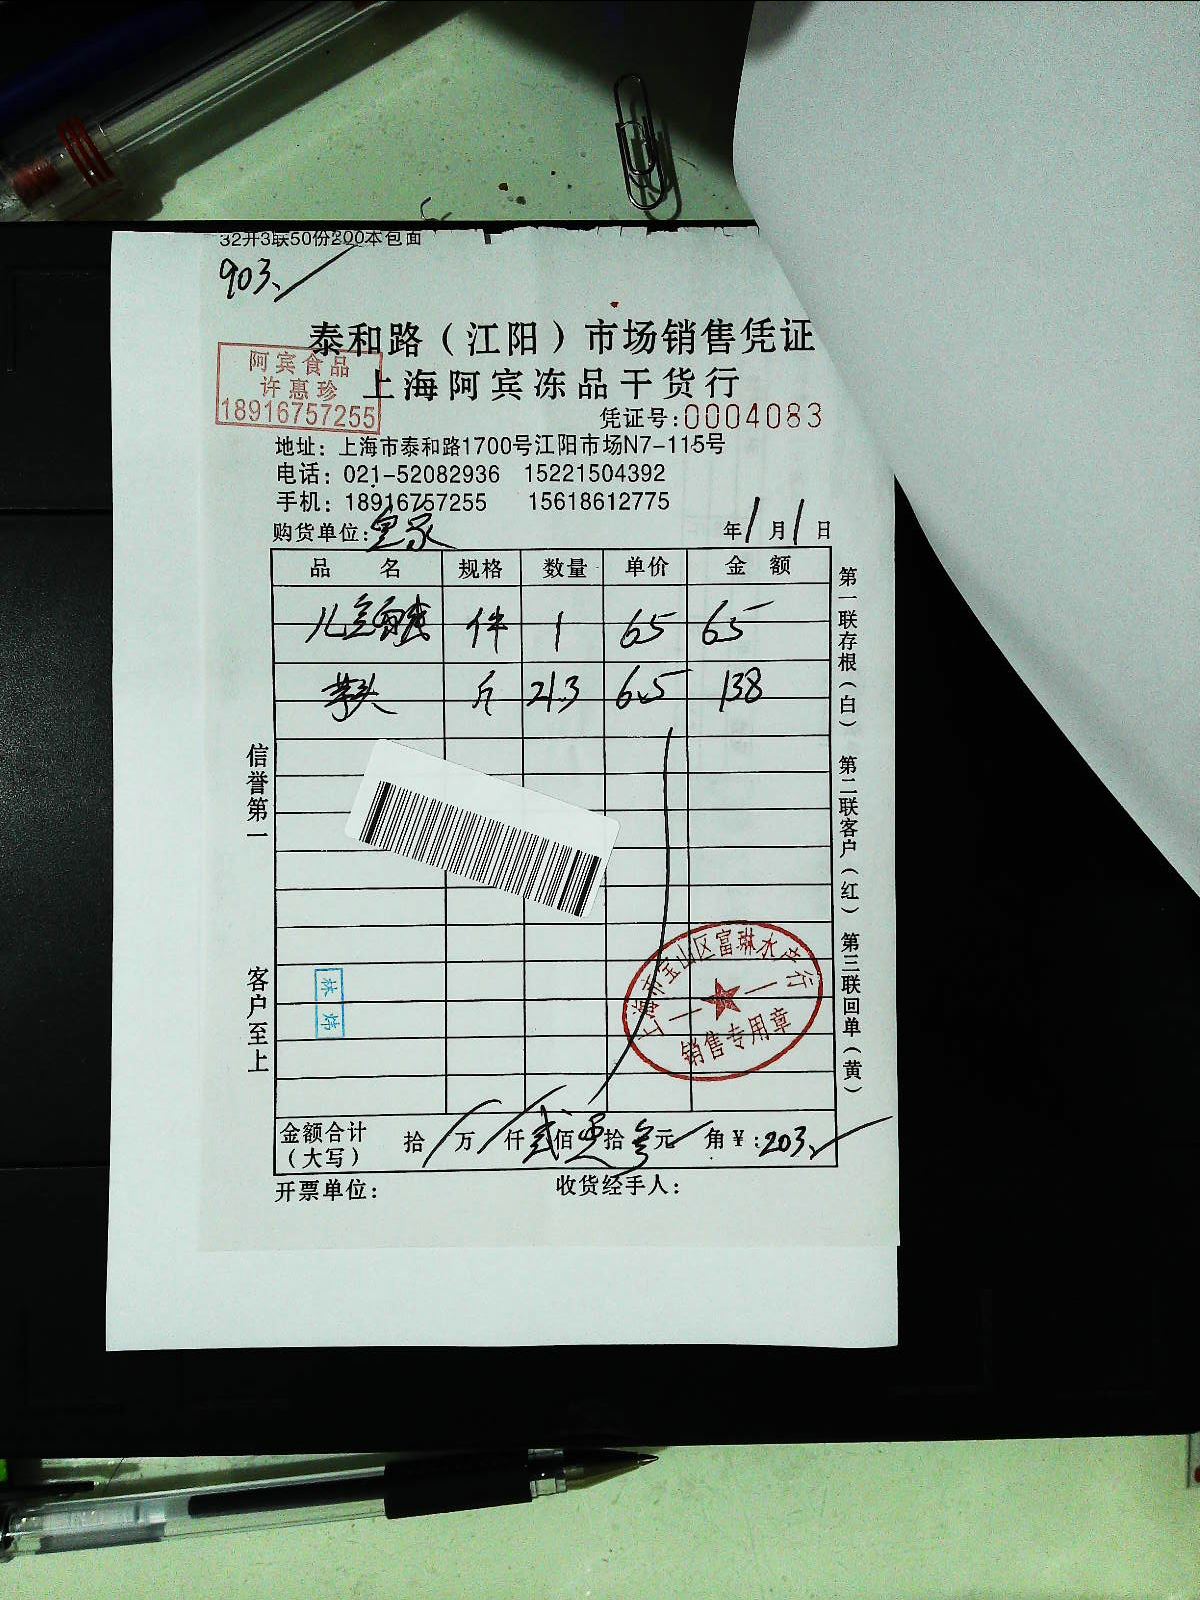 32开3联50份200本包面
903
泰和路（江阳）市场销售凭证
阿宾食品
许惠珍
18916757255
上海阿宾冻品干货行
凭证号:0004083
地址：上海市泰和路1700号江阳市场N7-115号
电话：021-52082936 15221504392
手机：18916757255 15618612775
购货单位: 年1月1日
品名 规格 数量 单价 金额
件 1 65 65
斤 21.3 6.5 138
信誉第一
客户至上
第一联存根（白） 第二联客户（红） 第三联回单（黄）
林炜
上海市宝山区富琳水产行
销售专用章
金额合计 拾 万 仟 贰佰 零拾 叁元 角￥:203
（大写）
开票单位： 收货经手人：